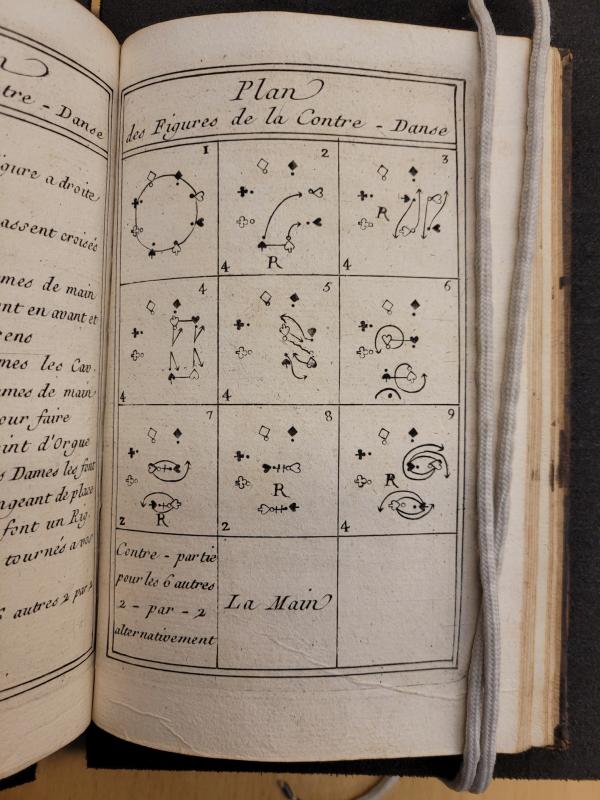 tre - Danse
figure a droite
passent croisés
mes de main
nt en avant et
mes les Cav.
mes de main
our faire
oint d'Orgue
s Dames les font
ngeant de place
font un Rig.
tournés a vos
6 autres 2 par 2
Plan
des Figures de la Contre - Danse
1 2 3
R
4 R 4
4 5 6
4 4
7 8 9
R R
2 R 2 4
Contre - partie
pour les 6 autres
2 - par - 2
alternativement
La Main